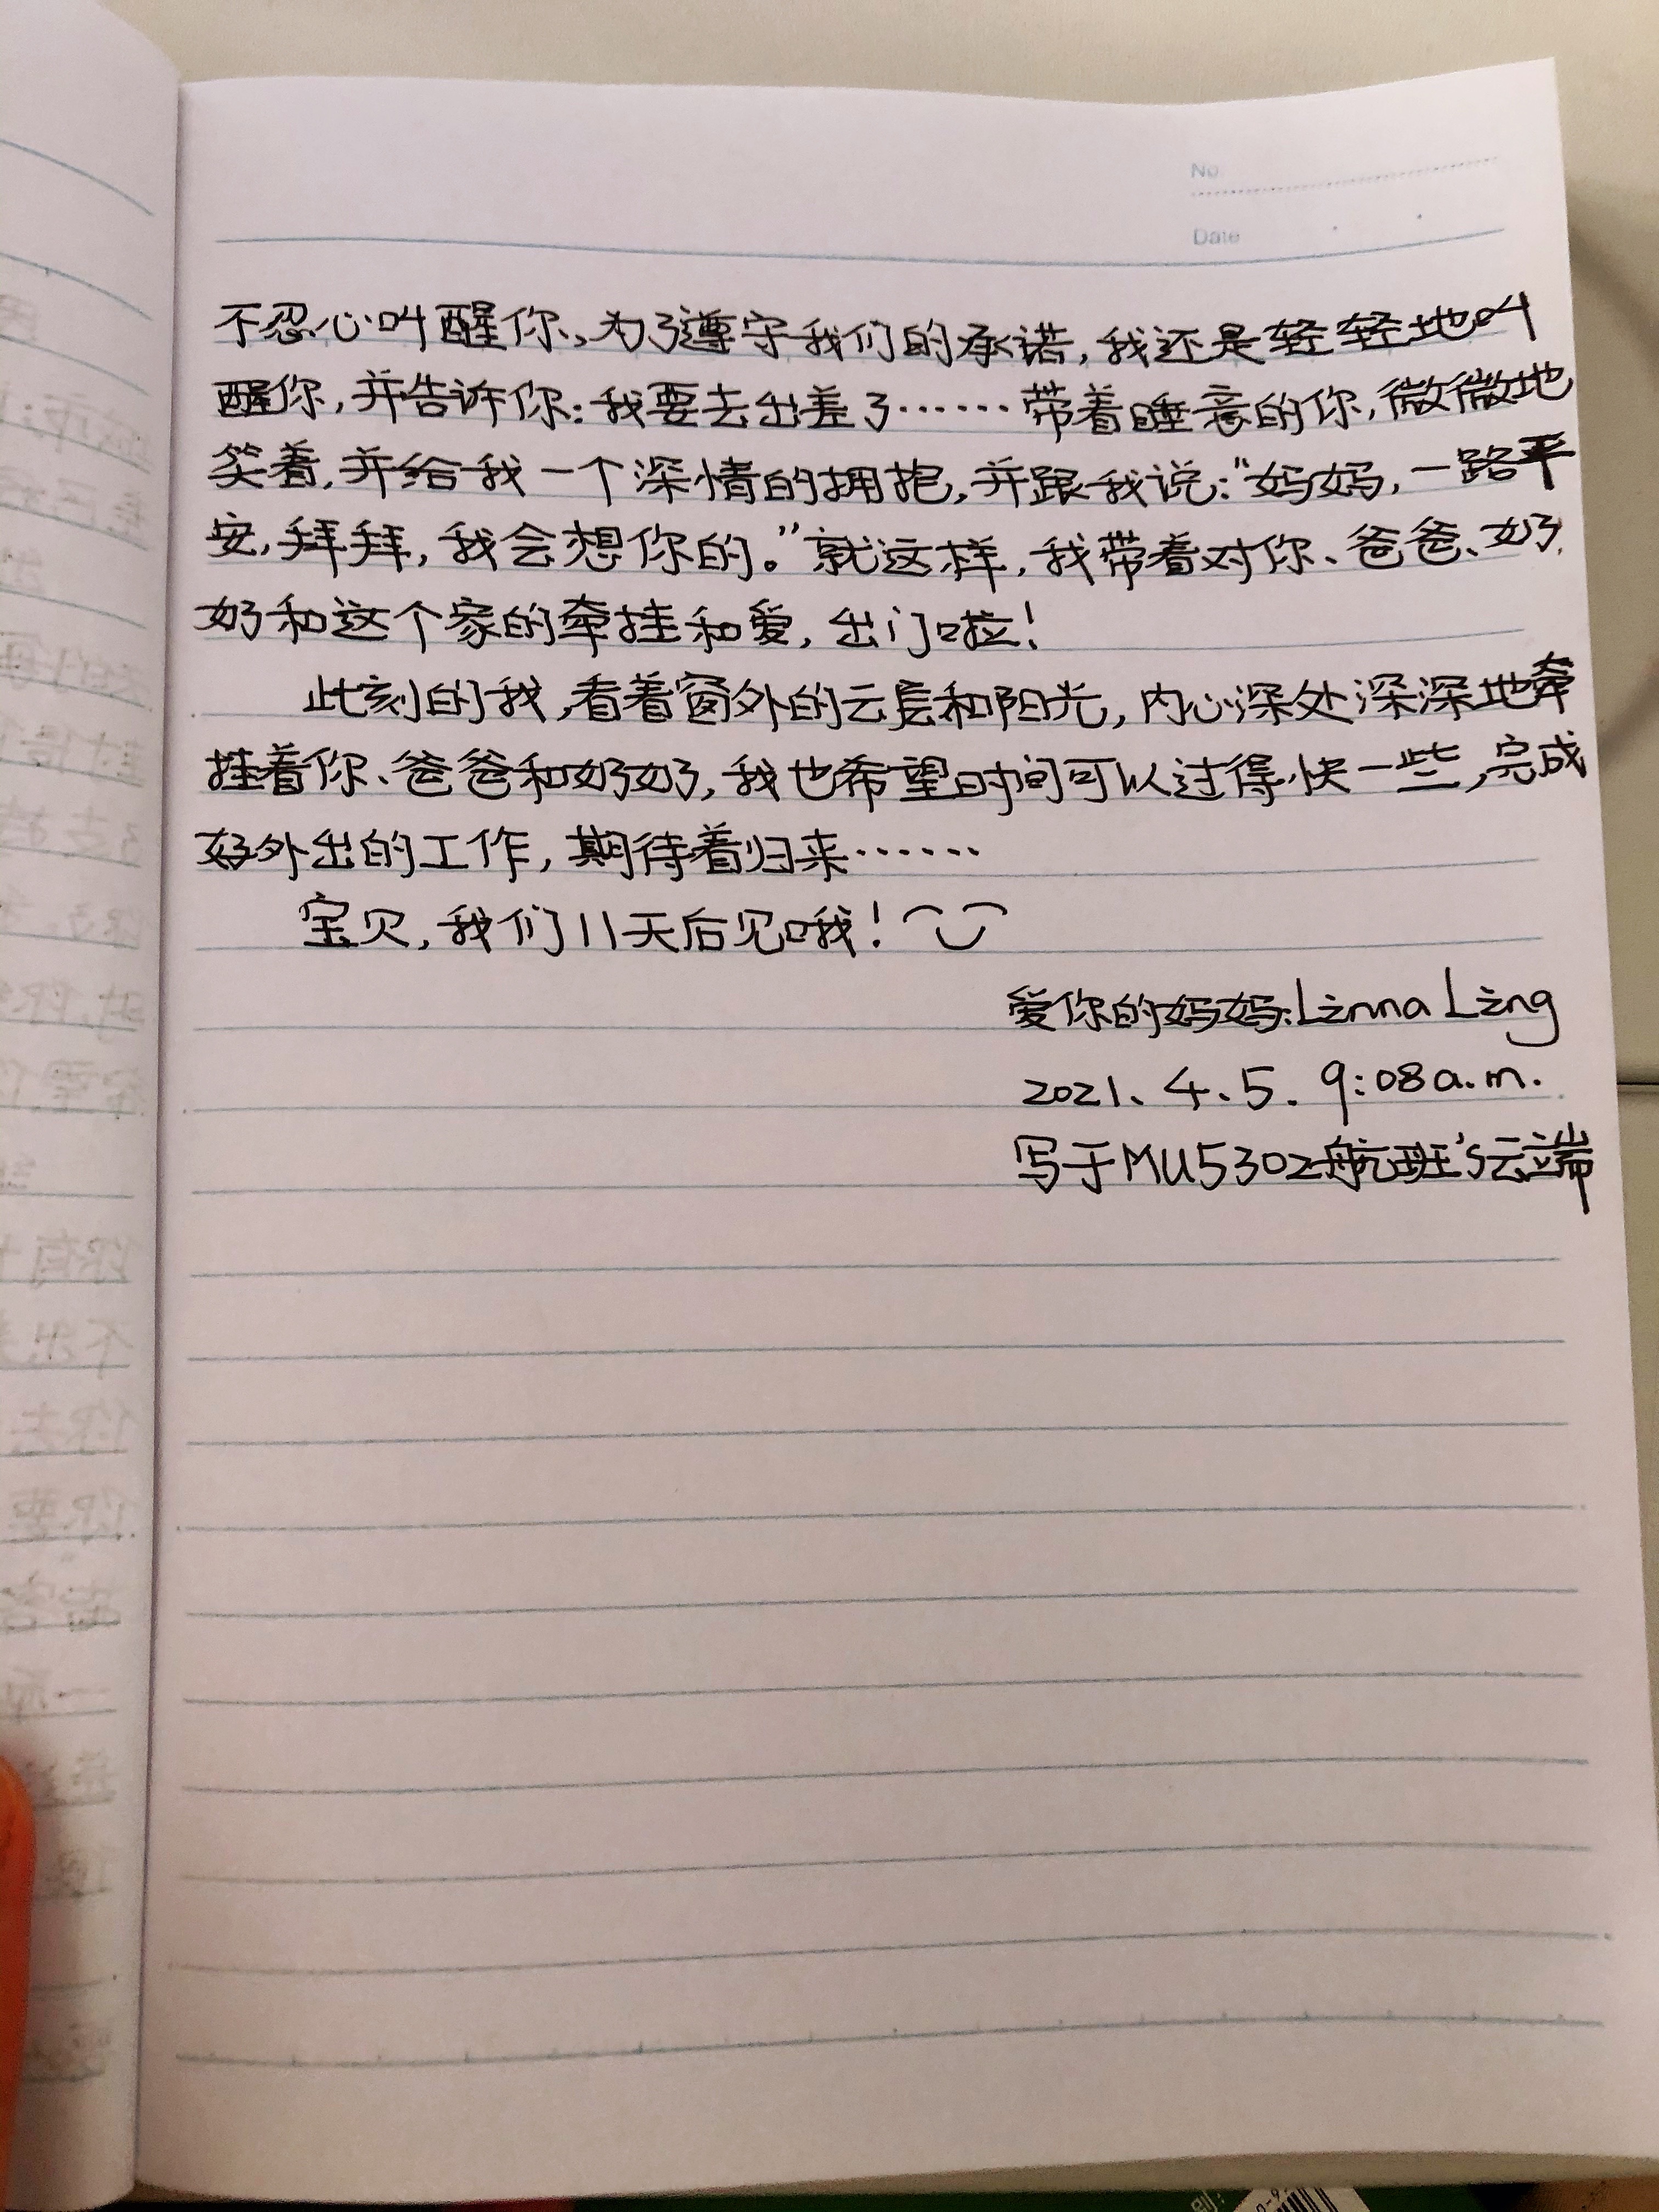 No
Date
不忍心叫醒你、为了遵守我们的承诺,我还是轻轻地叫
醒你,并告诉你:我要去出差了……带着睡意的你,微微地
笑着,并给我一个深情的拥抱,并跟我说:“妈妈,一路平
安,拜拜,我会想你的。”就这样,我带着对你、爸爸、奶
奶和这个家的牵挂和爱,出门啦!
此刻的我,看着窗外的云层和阳光,内心深处深深地牵
挂着你、爸爸和奶奶,我也希望时间可以过得快一些,完成
好外出的工作,期待着归来……
宝贝,我们11天后见哦!
爱你的妈妈:Linna Ling
2021、4、5. 9:08a.m.
写于MU5302航班's云端